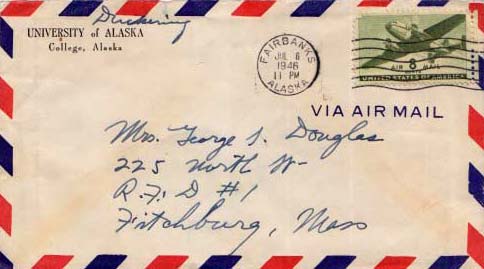 Duckering
UNIVERSITY of ALASKA
College, Alaska
FAIRBANKS
JUL 6
1946
11 PM
ALASKA
8
AIR MAIL
UNITED STATES OF AMERICA
VIA AIR MAIL
Mrs. George S. Douglas
225 North St
R.F.D #1
Fitchburg, Mass